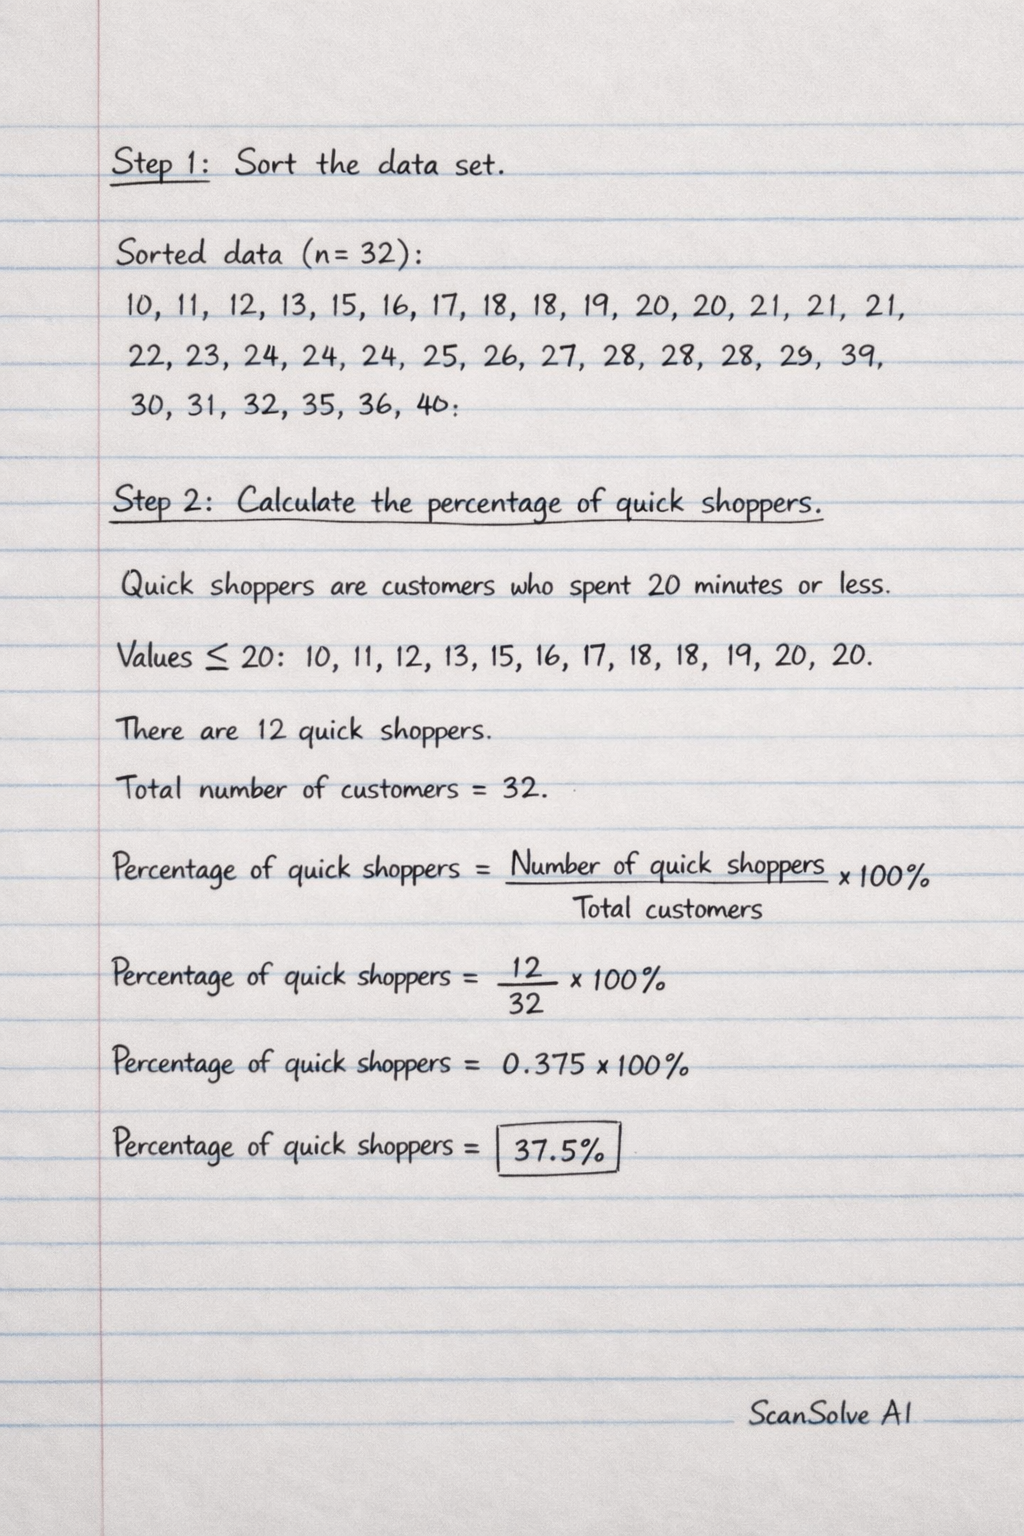 Step 1: Sort the data set.
Sorted data (n= 32):
10, 11, 12, 13, 15, 16, 17, 18, 18, 19, 20, 20, 21, 21, 21,
22, 23, 24, 24, 24, 25, 26, 27, 28, 28, 28, 29, 39,
30, 31, 32, 35, 36, 40:
Step 2: Calculate the percentage of quick shoppers.
Quick shoppers are customers who spent 20 minutes or less.
Values ≤ 20: 10, 11, 12, 13, 15, 16, 17, 18, 18, 19, 20, 20.
There are 12 quick shoppers.
Total number of customers = 32.
Percentage of quick shoppers = Number of quick shoppers / Total customers × 100%
Percentage of quick shoppers = 12/32 × 100%
Percentage of quick shoppers = 0.375 × 100%
Percentage of quick shoppers = 37.5%
ScanSolve AI